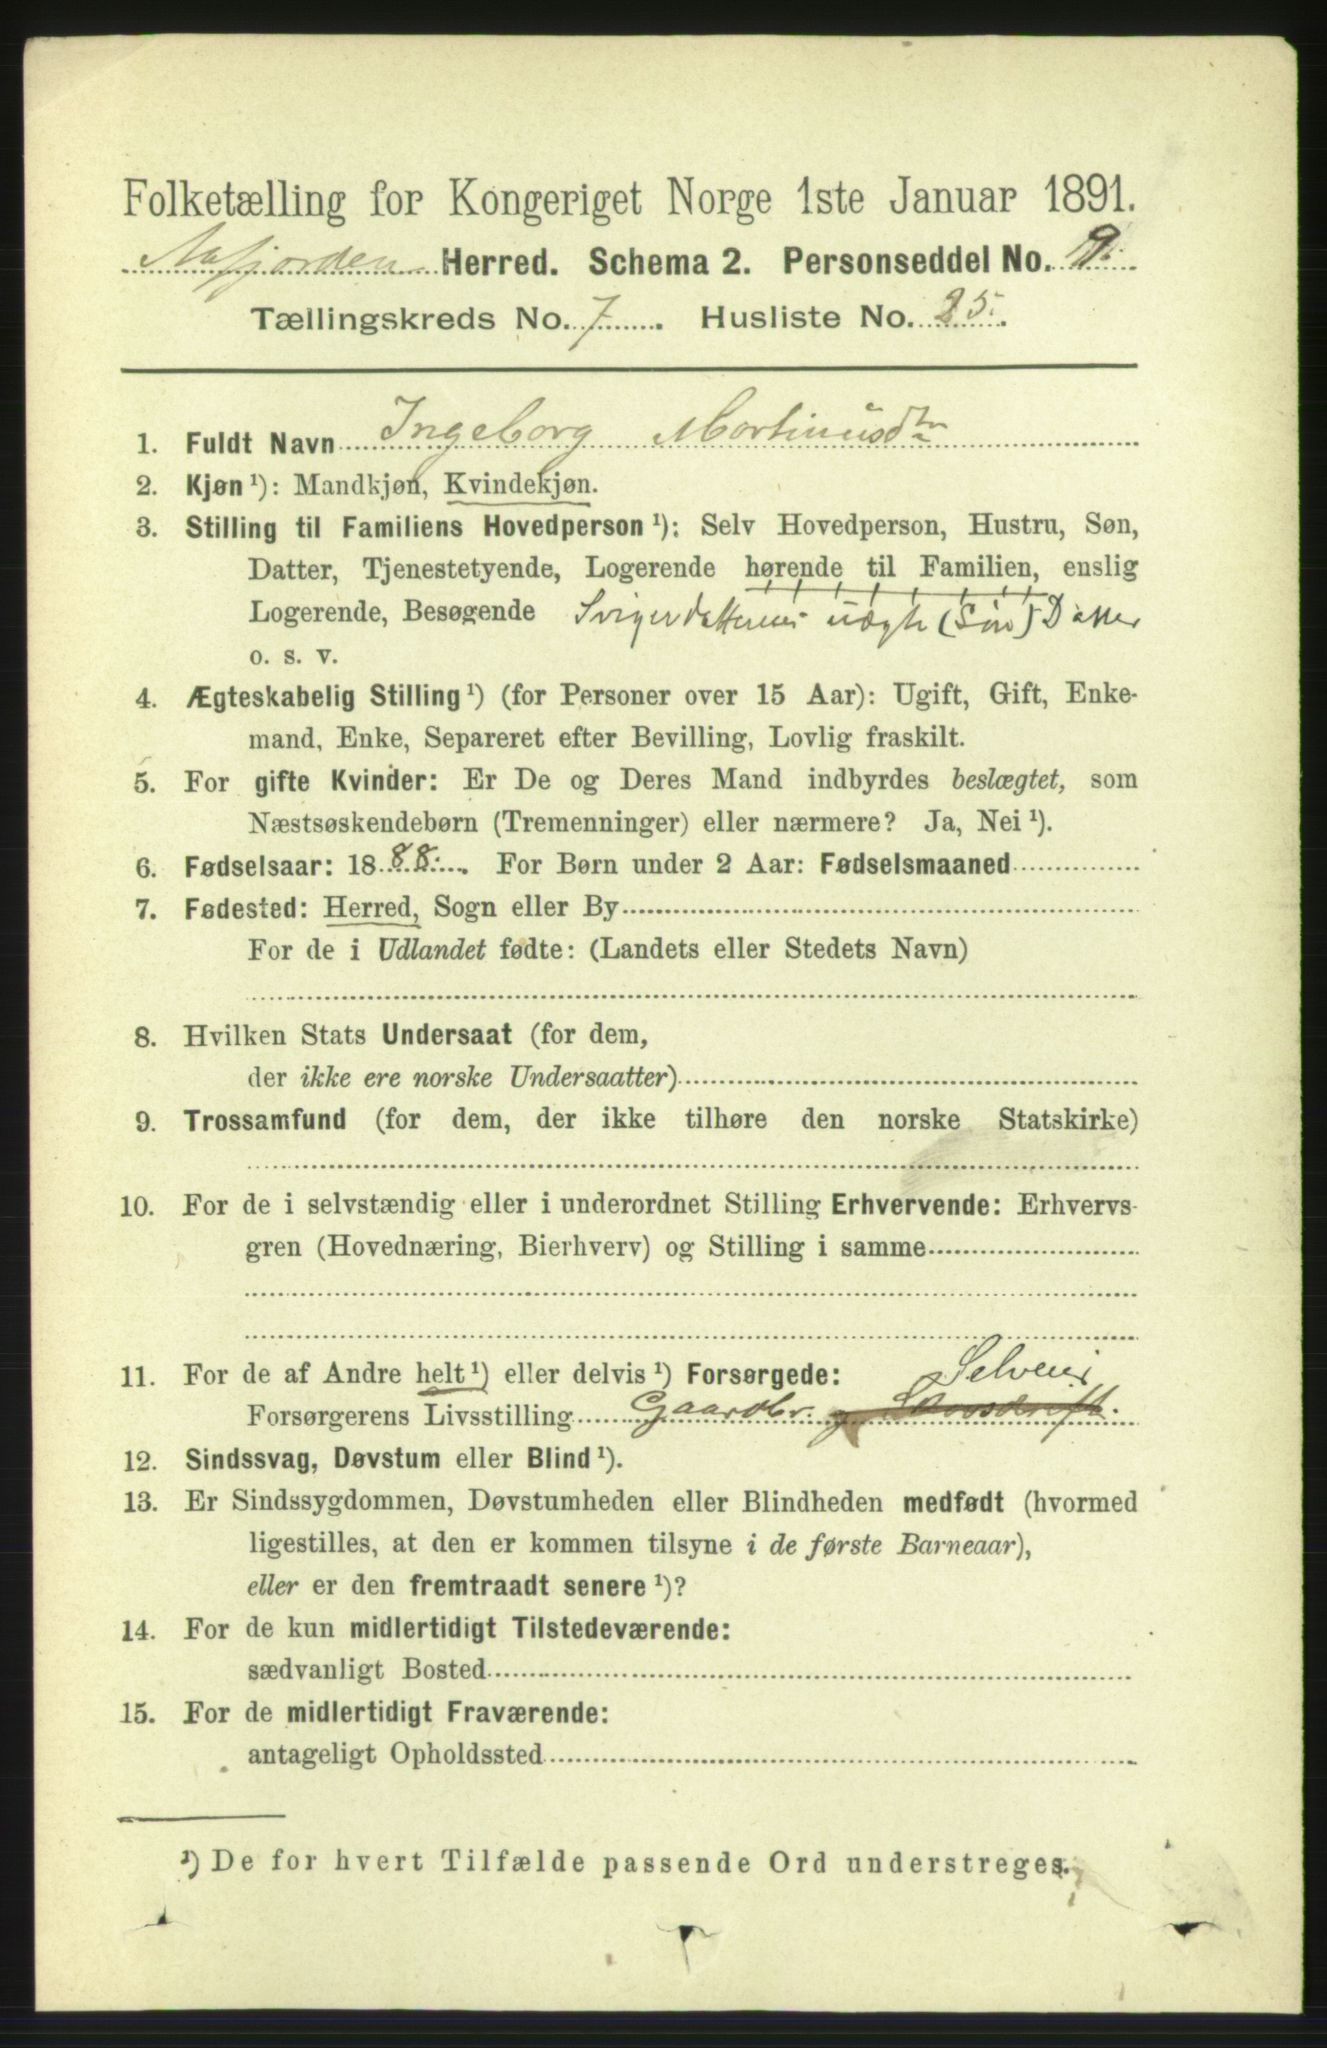 Folketælling for Kongeriget Norge 1ste Januar 1891.
Aafjorden Herred. Schema 2. Personseddel No. 9.
Tællingskreds No. 7. Husliste No. 25.
1. Fuldt Navn Ingeborg Martinusdtr
2. Kjøn ¹): Mandkjøn, Kvindekjøn.
3. Stilling til Familiens Hovedperson ¹): Selv Hovedperson, Hustru, Søn,
Datter, Tjenestetyende, Logerende hørende til Familien, enslig
Logerende, Besøgende Svigerdatterens uægte (Søn) Datter
o. s. v.
4. Ægteskabelig Stilling ¹) (for Personer over 15 Aar): Ugift, Gift, Enke-
mand, Enke, Separeret efter Bevilling, Lovlig fraskilt.
5. For gifte Kvinder: Er De og Deres Mand indbyrdes beslægtet, som
Næstsøskendebørn (Tremenninger) eller nærmere? Ja, Nei ¹).
6. Fødselsaar: 1888. For Børn under 2 Aar: Fødselsmaaned
7. Fødested: Herred, Sogn eller By
For de i Udlandet fødte: (Landets eller Stedets Navn)
8. Hvilken Stats Undersaat (for dem,
der ikke ere norske Undersaatter)
9. Trossamfund (for dem, der ikke tilhøre den norske Statskirke)
10. For de i selvstændig eller i underordnet Stilling Erhvervende: Erhvervs-
gren (Hovednæring, Bierhverv) og Stilling i samme
11. For de af Andre helt ¹) eller delvis ¹) Forsørgede: Selveier
Forsørgerens Livsstilling Gaardbr. og Skovsdrift.
12. Sindssvag, Døvstum eller Blind ¹).
13. Er Sindssygdommen, Døvstumheden eller Blindheden medfødt (hvormed
ligestilles, at den er kommen tilsyne i de første Barneaar),
eller er den fremtraadt senere ¹)?
14. For de kun midlertidigt Tilstedeværende:
sædvanligt Bosted
15. For de midlertidigt Fraværende:
antageligt Opholdssted
¹) De for hvert Tilfælde passende Ord understreges.